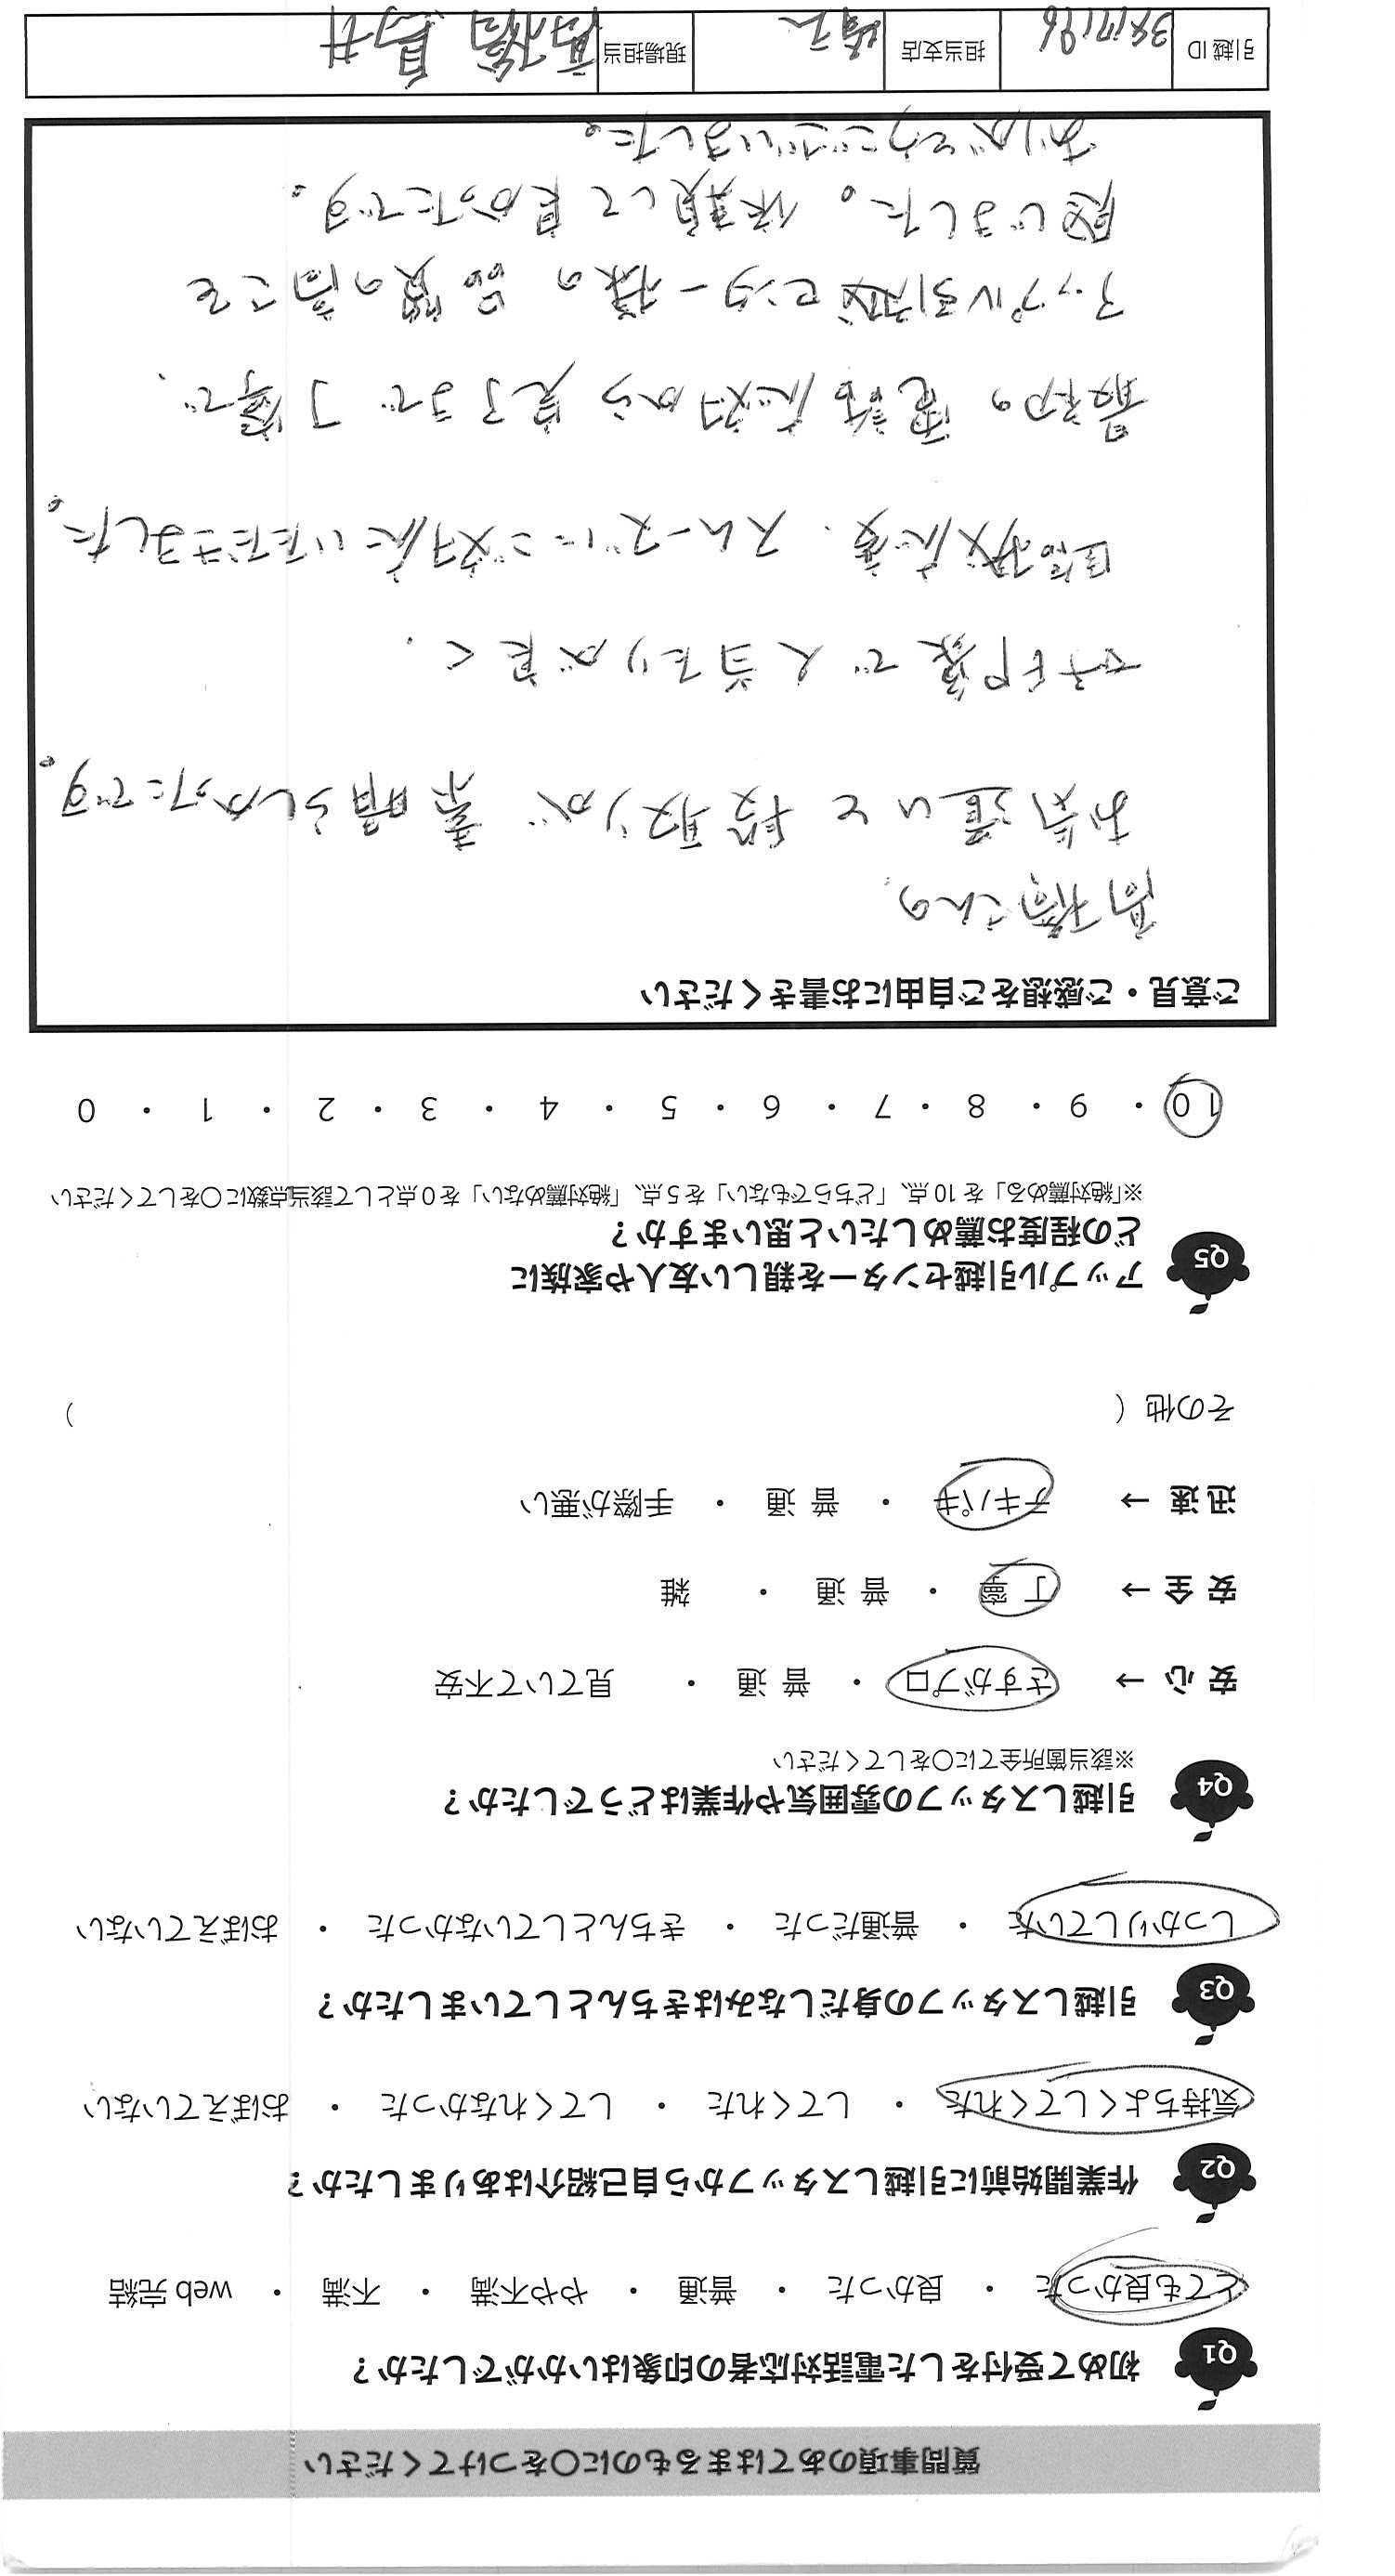 質問事項のあてはまるものに○をつけてください
Q1 初めて受付をした電話対応者の印象はいかがでしたか？
とても良かった ・ 良かった ・ 普通 ・ やや不満 ・ 不満 ・ web 完結
Q2 作業開始前に引越しスタッフから自己紹介はありましたか？
気持ちよくしてくれた ・ してくれた ・ してくれなかった ・ おぼえていない
Q3 引越しスタッフの身だしなみはきちんとしていましたか？
しっかりしていた ・ 普通だった ・ きちんとしていなかった ・ おぼえていない
Q4 引越しスタッフの雰囲気や作業はどうでしたか？
※該当箇所全てに○をしてください
安 心 → さすがプロ ・ 普 通 ・ 見ていて不安
安 全 → 丁 寧 ・ 普 通 ・ 雑
迅 速 → テキパキ ・ 普 通 ・ 手際が悪い
その他（ ）
Q5 アップル引越センターを親しい友人や家族に
どの程度お薦めしたいと思いますか？
※「絶対薦める」を 10 点、「どちらでもない」を 5 点、「絶対薦めない」を 0 点として該当点数に○をしてください
10 ・ 9 ・ 8 ・ 7 ・ 6 ・ 5 ・ 4 ・ 3 ・ 2 ・ 1 ・ 0
ご意見・ご感想をご自由にお書きください
高橋さんの、
お気遣いと 段取りが 素晴らしかったです。
好印象で人当たりが良く、
臨機応変、スムーズにご対応いただきました。
最初の電話応対から完了まで丁寧で、
アップル引越センター様の品質の高こを
感じました。依頼して良かったです。
ありがとうございました。
引越 ID 担当支店 埼玉 現場担当 高橋 鳥井